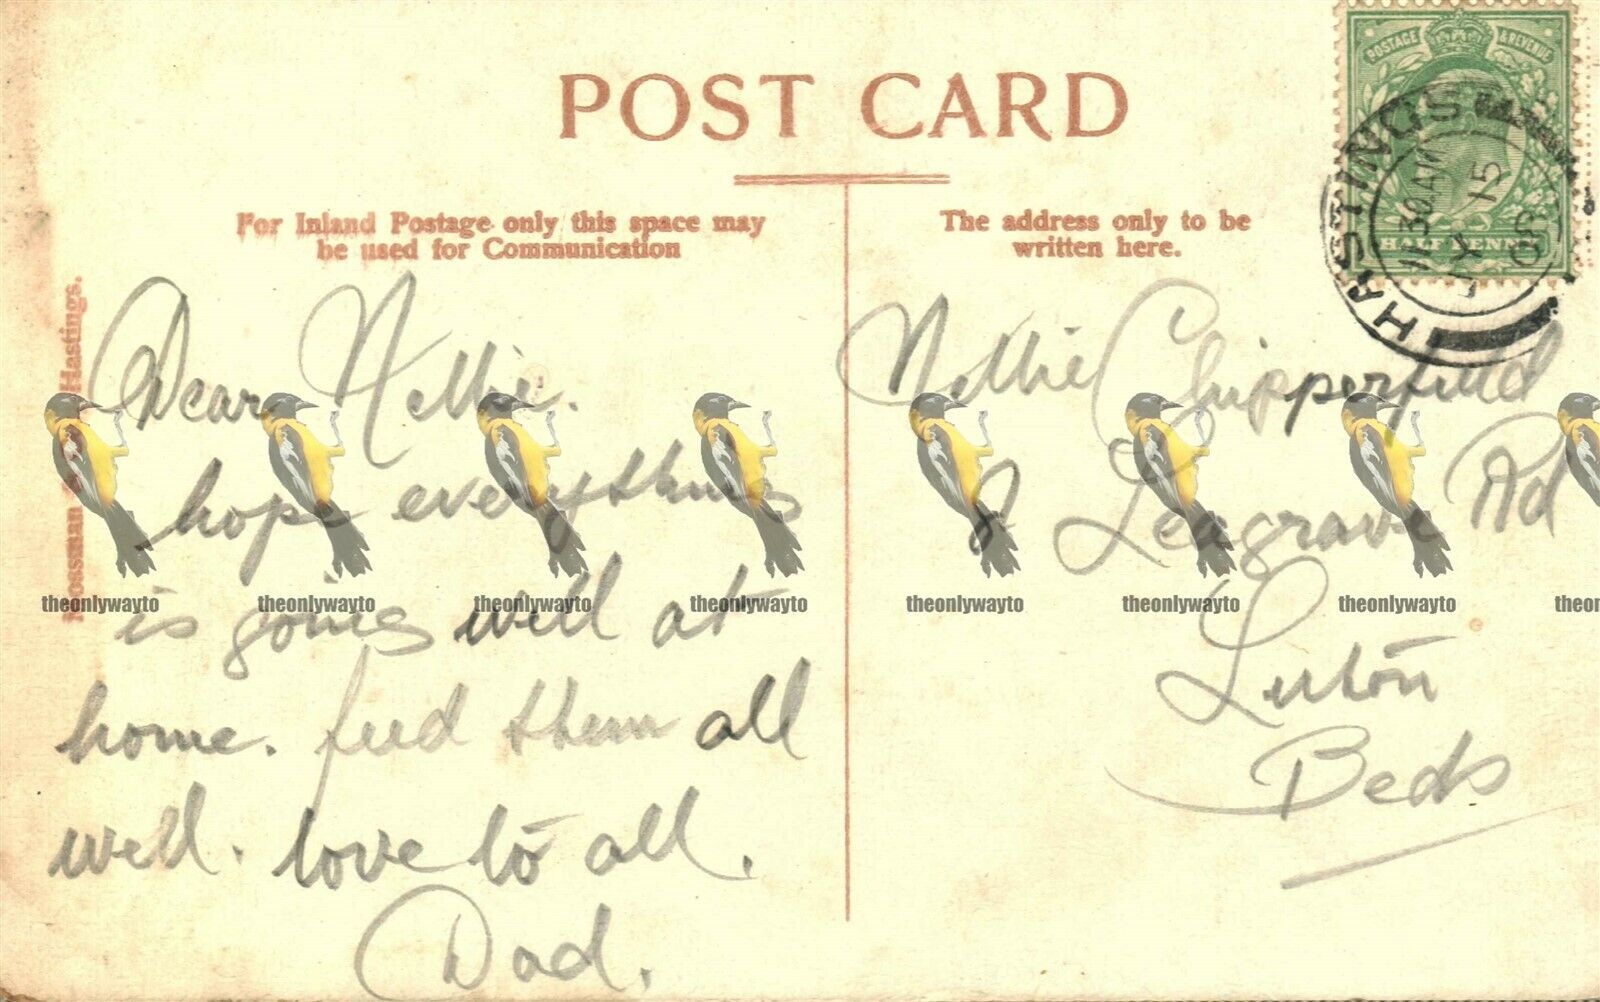 POST CARD
For Inland Postage only this space may
be used for Communication
The address only to be
written here.
POSTAGE & REVENUE
HALFPENNY
HASTINGS
11 30 AM
15
08
Hastings.
Dear Nellie.
hope everything
is going well at
home. feed them all
well. love to all.
Dad.
Nellie Chipperfield
Leagrave Rd
Luton
Beds
theonlywayto theonlywayto theonlywayto theonlywayto theonlywayto theonlywayto theonlywayto theon